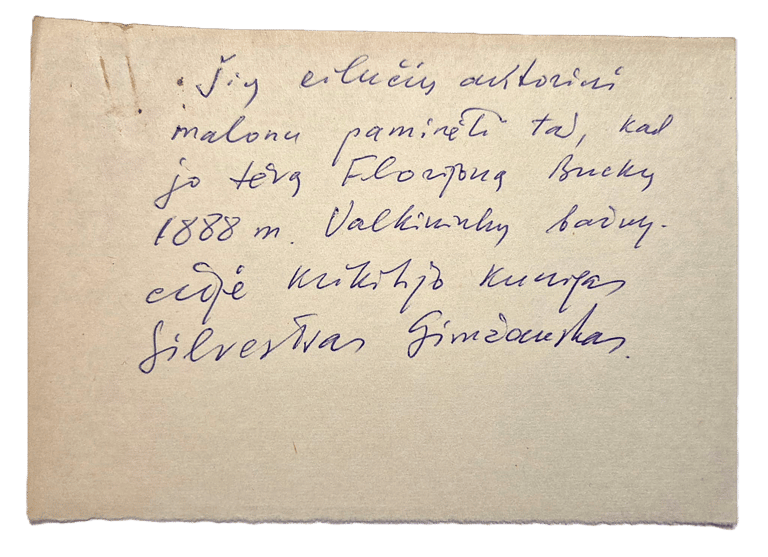 Šių eilučių autoriui
malonu paminėti tai, kad
jo tėvą Florijoną Bucką
1888 m. Valkininkų bažny-
čioje krikštijo kunigas
Silvestras Gimžauskas.